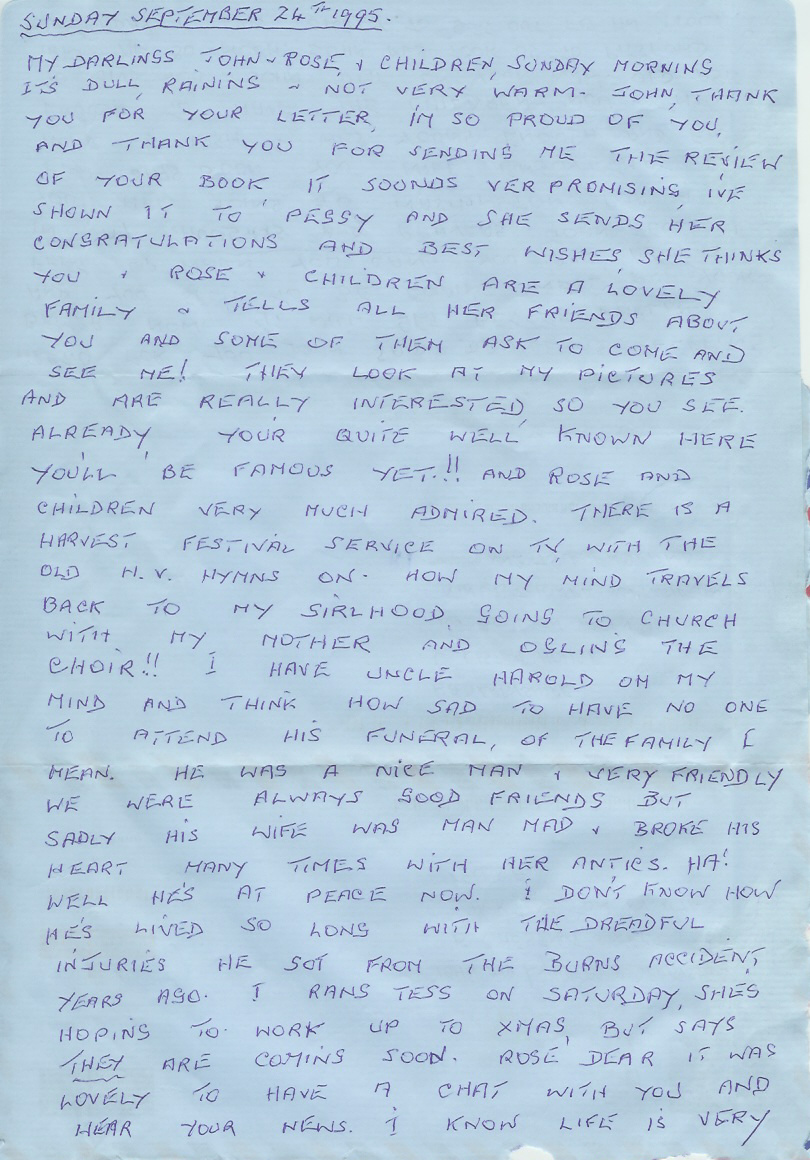 SUNDAY SEPTEMBER 24TH 1995.
MY DARLINGS JOHN & ROSE, & CHILDREN, SUNDAY MORNING
IT'S DULL, RAINING & NOT VERY WARM. JOHN, THANK
YOU FOR YOUR LETTER, I'M SO PROUD OF YOU,
AND THANK YOU FOR SENDING ME THE REVIEW
OF YOUR BOOK IT SOUNDS VER PROMISING, I'VE
SHOWN IT TO PEGGY AND SHE SENDS HER
CONGRATULATIONS AND BEST WISHES SHE THINKS
YOU & ROSE & CHILDREN ARE A LOVELY
FAMILY & TELLS ALL HER FRIENDS ABOUT
YOU AND SOME OF THEM ASK TO COME AND
SEE ME! THEY LOOK AT MY PICTURES
AND ARE REALLY INTERESTED, SO YOU SEE.
ALREADY YOUR QUITE WELL KNOWN HERE
YOU'LL BE FAMOUS YET.!! AND ROSE AND
CHILDREN VERY MUCH ADMIRED. THERE IS A
HARVEST FESTIVAL SERVICE ON TV, WITH THE
OLD H.V. HYMNS ON. HOW MY MIND TRAVELS
BACK TO MY GIRLHOOD, GOING TO CHURCH
WITH MY MOTHER AND OGLING THE
CHOIR!! I HAVE UNCLE HAROLD ON MY
MIND AND THINK HOW SAD TO HAVE NO ONE
TO ATTEND HIS FUNERAL, OF THE FAMILY I
MEAN. HE WAS A NICE MAN & VERY FRIENDLY
WE WERE ALWAYS GOOD FRIENDS BUT
SADLY HIS WIFE WAS MAN MAD & BROKE HIS
HEART MANY TIMES WITH HER ANTICS. HA!
WELL HE'S AT PEACE NOW. I DON'T KNOW HOW
HE'S LIVED SO LONG WITH THE DREADFUL
INJURIES HE GOT FROM THE BURNS ACCIDENT,
YEARS AGO. I RANG TESS ON SATURDAY, SHES
HOPING TO WORK UP TO XMAS, BUT SAYS
THEY ARE COMING SOON. ROSE DEAR IT WAS
LOVELY TO HAVE A CHAT WITH YOU AND
HEAR YOUR NEWS. I KNOW LIFE IS VERY